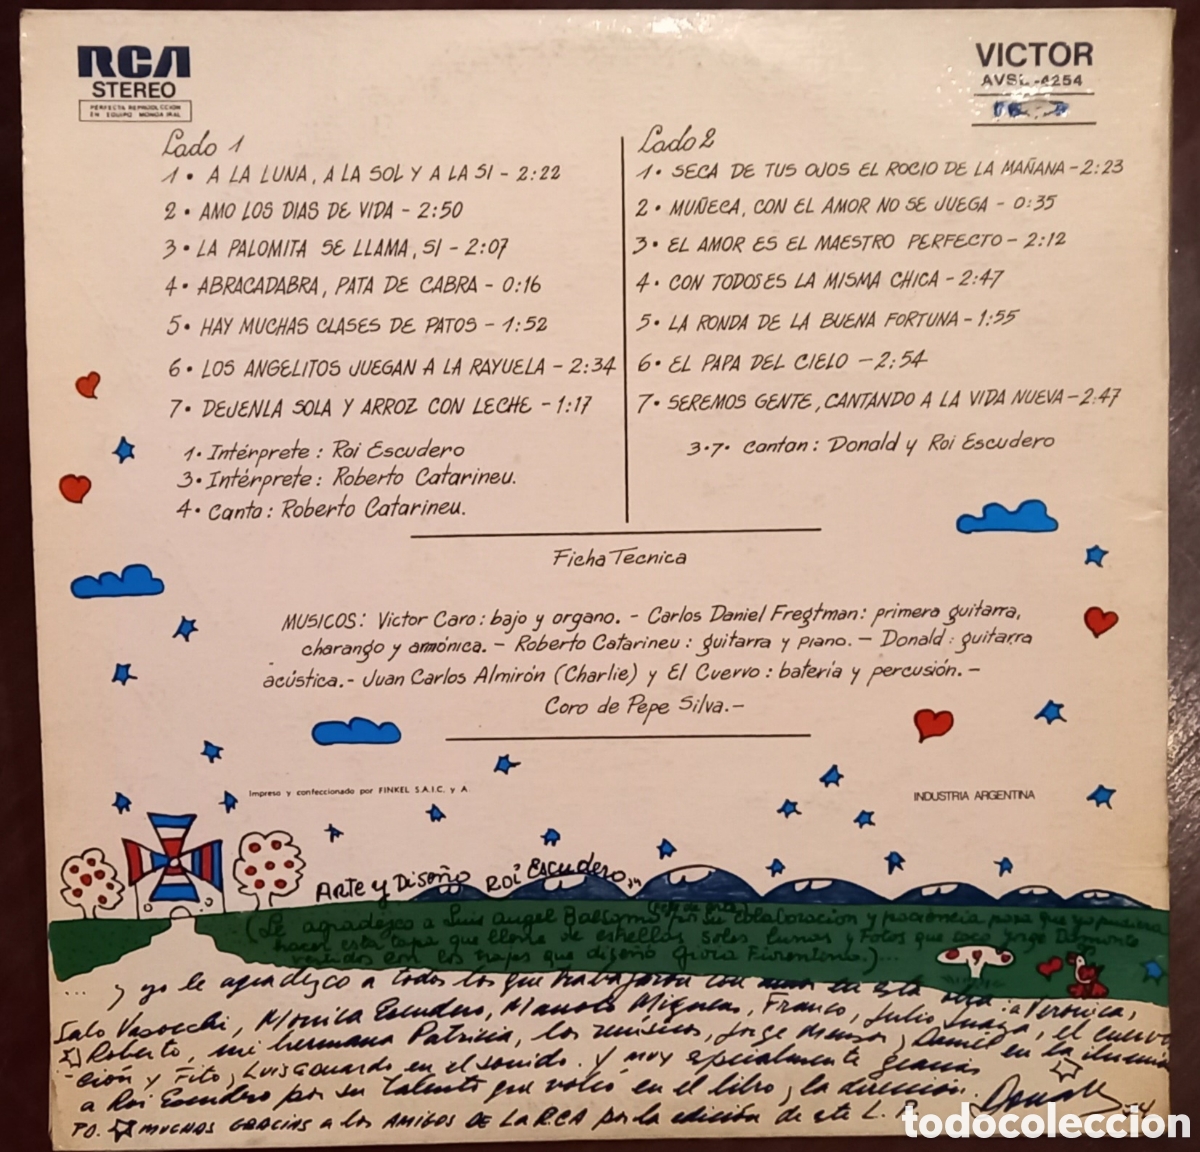 RCA
STEREO
PERFECTA REPRODUCCION
EN EQUIPO MONOAURAL
VICTOR
AVSL-4254
Lado 1
1• A LA LUNA, A LA SOL Y A LA SI - 2:22
2• AMO LOS DIAS DE VIDA - 2:50
3• LA PALOMITA SE LLAMA, SI - 2:07
4• ABRACADABRA, PATA DE CABRA - 0:16
5• HAY MUCHAS CLASES DE PATOS - 1:52
6• LOS ANGELITOS JUEGAN A LA RAYUELA - 2:34
7• DEJENLA SOLA Y ARROZ CON LECHE - 1:17
1• Intérprete: Roi Escudero
3• Intérprete: Roberto Catarineu.
4• Canta: Roberto Catarineu.
Lado 2
1• SECA DE TUS OJOS EL ROCIO DE LA MAÑANA - 2:23
2• MUÑECA, CON EL AMOR NO SE JUEGA - 0:35
3• EL AMOR ES EL MAESTRO PERFECTO - 2:12
4• CON TODOS ES LA MISMA CHICA - 2:47
5• LA RONDA DE LA BUENA FORTUNA - 1:55
6• EL PAPA DEL CIELO - 2:54
7• SEREMOS GENTE, CANTANDO A LA VIDA NUEVA - 2:47
3•7• Cantan: Donald y Roi Escudero
Ficha Tecnica
MUSICOS: Victor Caro: bajo y organo. - Carlos Daniel Fregtman: primera guitarra,
charango y armónica. - Roberto Catarineu: guitarra y piano. - Donald: guitarra
acústica. - Juan Carlos Almirón (Charlie) y El Cuervo: batería y percusión. -
Coro de Pepe Silva. -
Impreso y confeccionado por FINKEL S.A.I.C. y A.
INDUSTRIA ARGENTINA
Arte y Diseño Roi Escudero
(jefe de arte)
(Le agradezco a Luis Angel por su colaboracion y paciencia para que yo pudiera
hacer esta tapa que llene de estrellas soles lunas y Fotos que Jorge
vestidos con los trajes que diseño Fiorentino.)...
... y yo le agradezco a todos los que trabajaron con en esta : a Verónica,
Salo Vasocchi, Monica Escudero, Manolo, Franco, Julio, el cuervo
Roberto, mi hermana Patricia, los musicos, Jorge, Daniel en la ilumina
ción y Fito, Luis Eduardo en el sonido. Y muy especialmente gracias
a Roi Escudero por su talento que volcó en el libro, la dirección
TO. MUCHAS GRACIAS a los AMIGOS DE LA RCA por la edición de este L.P.
Donald
todocoleccion